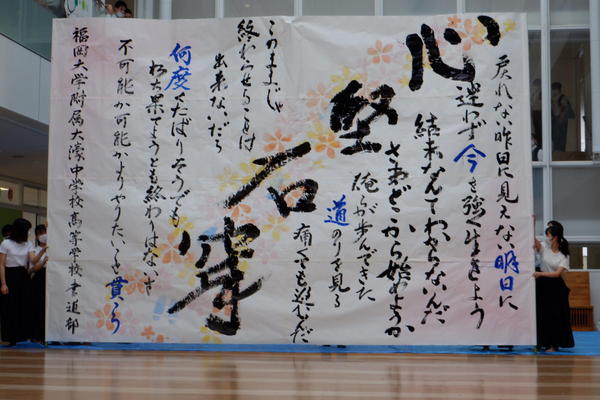 戻れない昨日に見えない明日に
心迷わず今を強く生きよう
結末なんてわからないんだ
さあどこから始めようか
堅石穿
俺らが歩んできた
道のりを見る
痛くても進んだ
このままじゃ
終わらせることは
出来ないだろ
何度くたばりそうでも
朽ち果てようとも終わりはないさ
不可能か可能かよりやりたいことを貫こう
福岡大学附属大濠中学校高等学校書道部